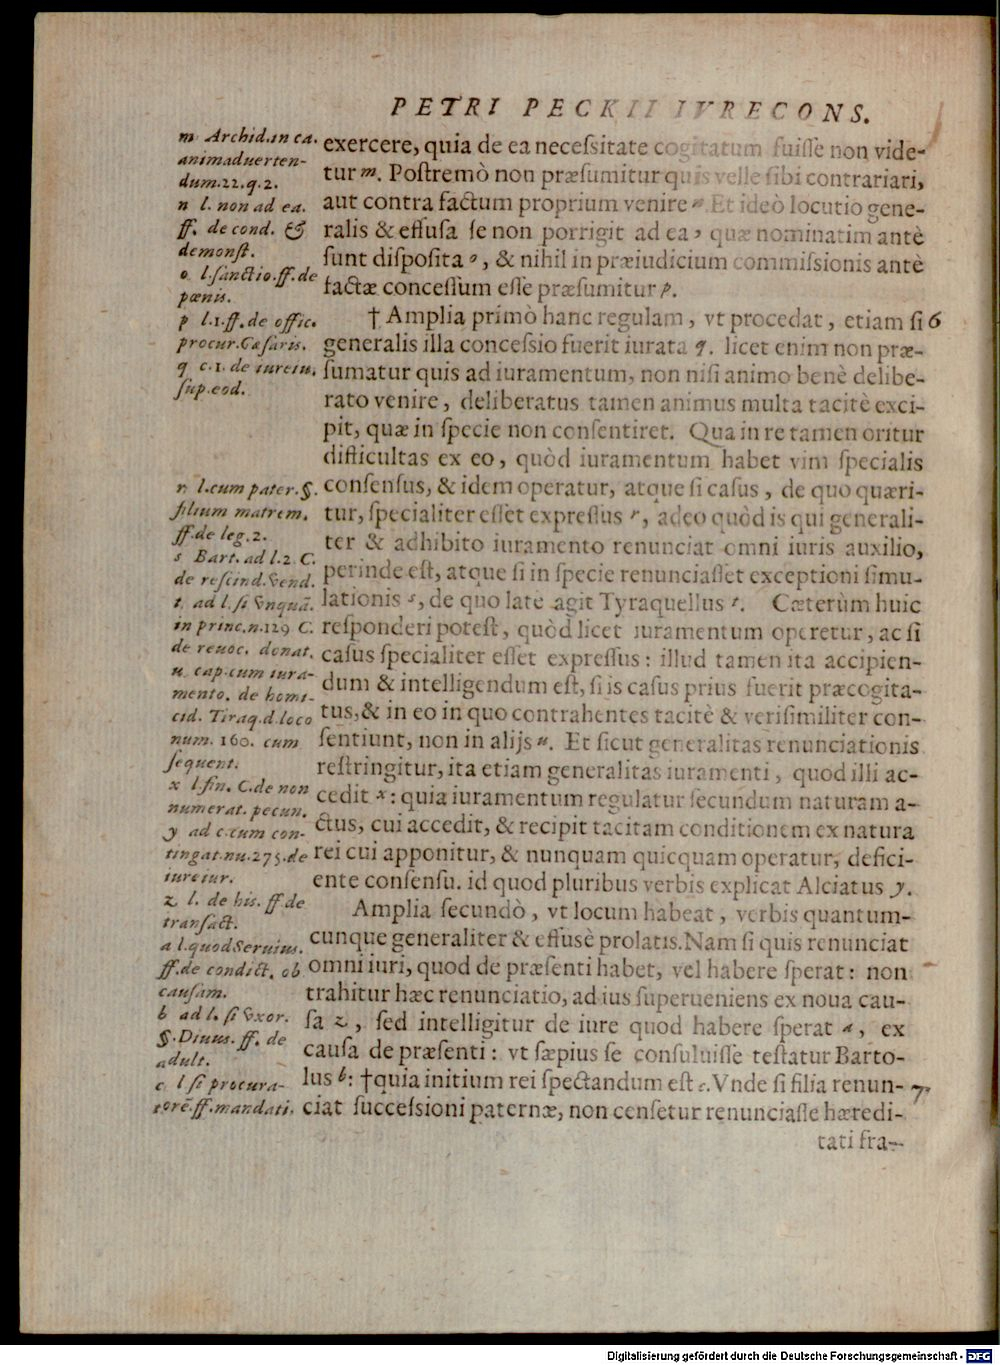 PETRI PECKII IVRECONS.
m Archid.in ca.
animaduerten-
dum.22.q.2.
n l. non ad ea.
ff. de cond. &
demonſt.
o l.ſanctio.ff.de
pœnis.
p l.1.ff.de offic.
procur.Cæſaris.
q c.1.de iureiu.
ſup.eod.
r l.cum pater.§.
filium matrem.
ff.de leg.2.
s Bart.ad l.2 C.
de reſcind.vend.
t ad l.ſi vnquā.
in princ.n.129 C.
de reuoc. donat.
u cap.cum iura-
mento. de homi-
cid. Tiraq.d.loco
num. 160. cum
ſequent.
x l.fin. C.de non
numerat. pecun.
y ad c.cum con-
tingat.nu.275.de
iureiur.
z l. de his. ff de
tranſact.
a l.quod Seruius.
ff.de condict. ob
cauſam.
b ad l. ſi vxor.
§.Diuus. ff. de
adult.
c l ſi procura-
torē.ff.mandati.
exercere, quia de ea neceſsitate cogitatum fuiſſè non vide-
tur m. Poſtremò non præſumitur quis velle ſibi contrariari,
aut contra factum proprium venire n. Et ideò locutio gene-
ralis & effuſa ſe non porrigit ad ea, quæ nominatim antè
ſunt diſpoſita o, & nihil in præiudicium commiſsionis antè
factæ conceſſum eſſe præſumitur p.
† Amplia primò hanc regulam, vt procedat, etiam ſi 6
generalis illa conceſsio fuerit iurata q. licet enim non præ-
ſumatur quis ad iuramentum, non niſi animo benè delibe-
rato venire, deliberatus tamen animus multa tacitè exci-
pit, quæ in ſpecie non conſentiret. Qua in re tamen oritur
difficultas ex eo, quòd iuramentum habet vim ſpecialis
conſenſus, & idem operatur, atque ſi caſus, de quo quæri-
tur, ſpecialiter eſſet expreſſus r, adeo quòd is qui generali-
ter & adhibito iuramento renunciat omni iuris auxilio,
perinde eſt, atque ſi in ſpecie renunciaſſet exceptioni ſimu-
lationis s, de quo latè agit Tyraquellus t. Cæterùm huic
reſponderi poteſt, quòd licet iuramentum operetur, ac ſi
caſus ſpecialiter eſſet expreſſus: illud tamen ita accipien-
dum & intelligendum eſt, ſi is caſus prius fuerit præcogita-
tus, & in eo in quo contrahentes tacitè & veriſimiliter con-
ſentiunt, non in alijs u. Et ſicut generalitas renunciationis
reſtringitur, ita etiam generalitas iuramenti, quod illi ac-
cedit x: quia iuramentum regulatur ſecundum naturam a-
ctus, cui accedit, & recipit tacitam conditionem ex natura
rei cui apponitur, & nunquam quicquam operatur, defici-
ente conſenſu. id quod pluribus verbis explicat Alciatus y.
Amplia ſecundò, vt locum habeat, verbis quantum-
cunque generaliter & effuſè prolatis. Nam ſi quis renunciat
omni iuri, quod de præſenti habet, vel habere ſperat: non
trahitur hæc renunciatio, ad ius ſuperueniens ex noua cau-
ſa z, ſed intelligitur de iure quod habere ſperat a, ex
cauſa de præſenti: vt ſæpius ſe conſuluiſſe teſtatur Barto-
lus b: †quia initium rei ſpectandum eſt c. Vnde ſi filia renun- 7.
ciat ſucceſsioni paternæ, non cenſetur renunciaſſe hæredi-
tati fra-
Digitalisierung gefördert durch die Deutsche Forschungsgemeinschaft - DFG